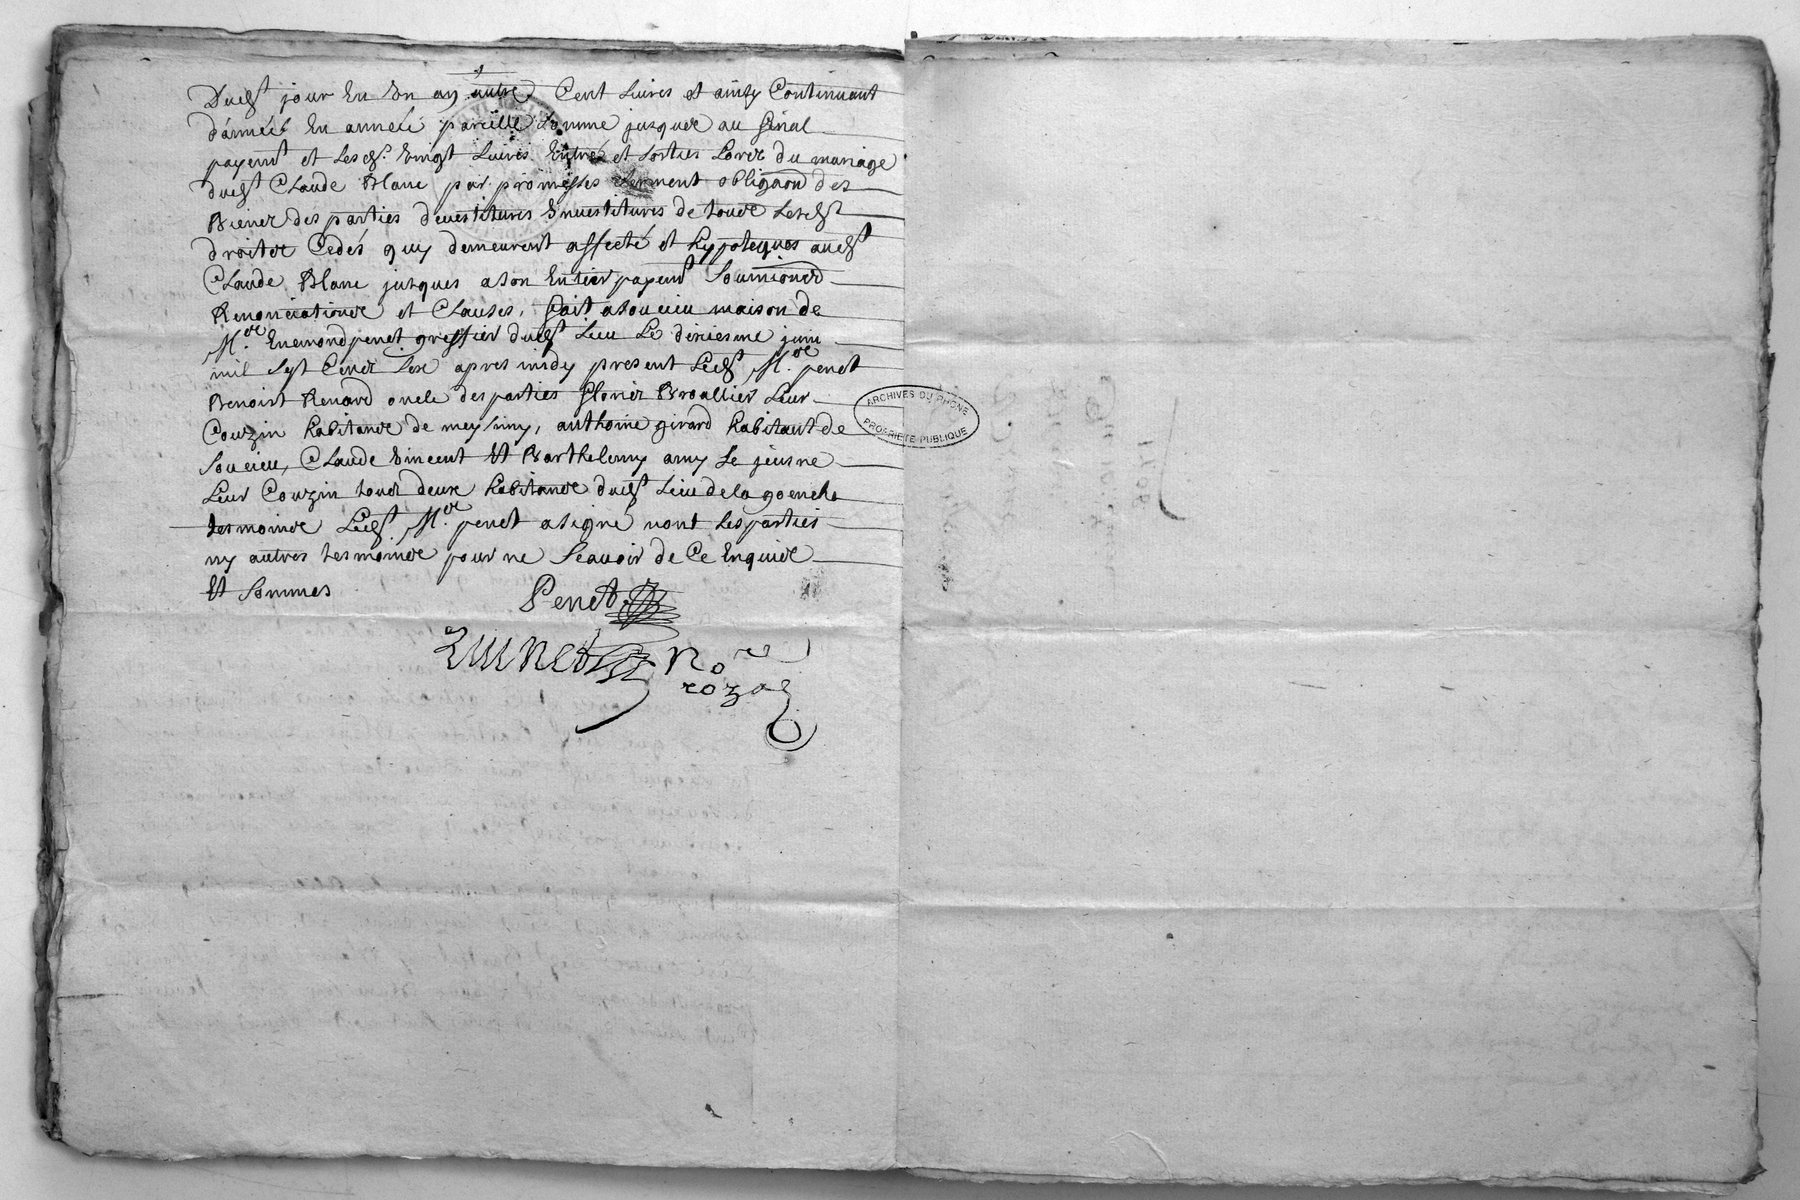 Dud.t jour En Un an autre Cent Livres et ainsy Continuant
d'année En année pareille Somme jusques au final
payem.t et Lesd. Vingt Livres Entrés et sorties Lorsz du mariage
dud.t Claude Blanc par promesses serment obligaon des
Biens des parties devestitures Envestitures de tous Lesd.t
droits Cedés quy demeurent affecté et hypoteques aud.t
Claude Blanc jusques a son Entier payem.t Soumionez
Renonciations et Clauses, fait a Soucieu maison de
M.re Enemond penet greffier dud.t Lieu Le dixiesme juin
mil Sept Cents Sese apres midy present Led.t M.re penet
Benoist Renard oncle des parties Broallier Leur
Couzin habitans de meyssiny, anthoine girard habitant de
Soucieu, Claude Vincent Et Barthelemy amy Le jeusne
Leur Couzin tous deux habitans dud.t Lieu de la
tesmoins Led.t M.re penet a signé nont Les parties
ny autres tesmoins pour ne Scavoir de Ce Enquis
Et Sommes
Penet
No.re
rozal
ARCHIVES DU RHONE
PROPRIETE PUBLIQUE